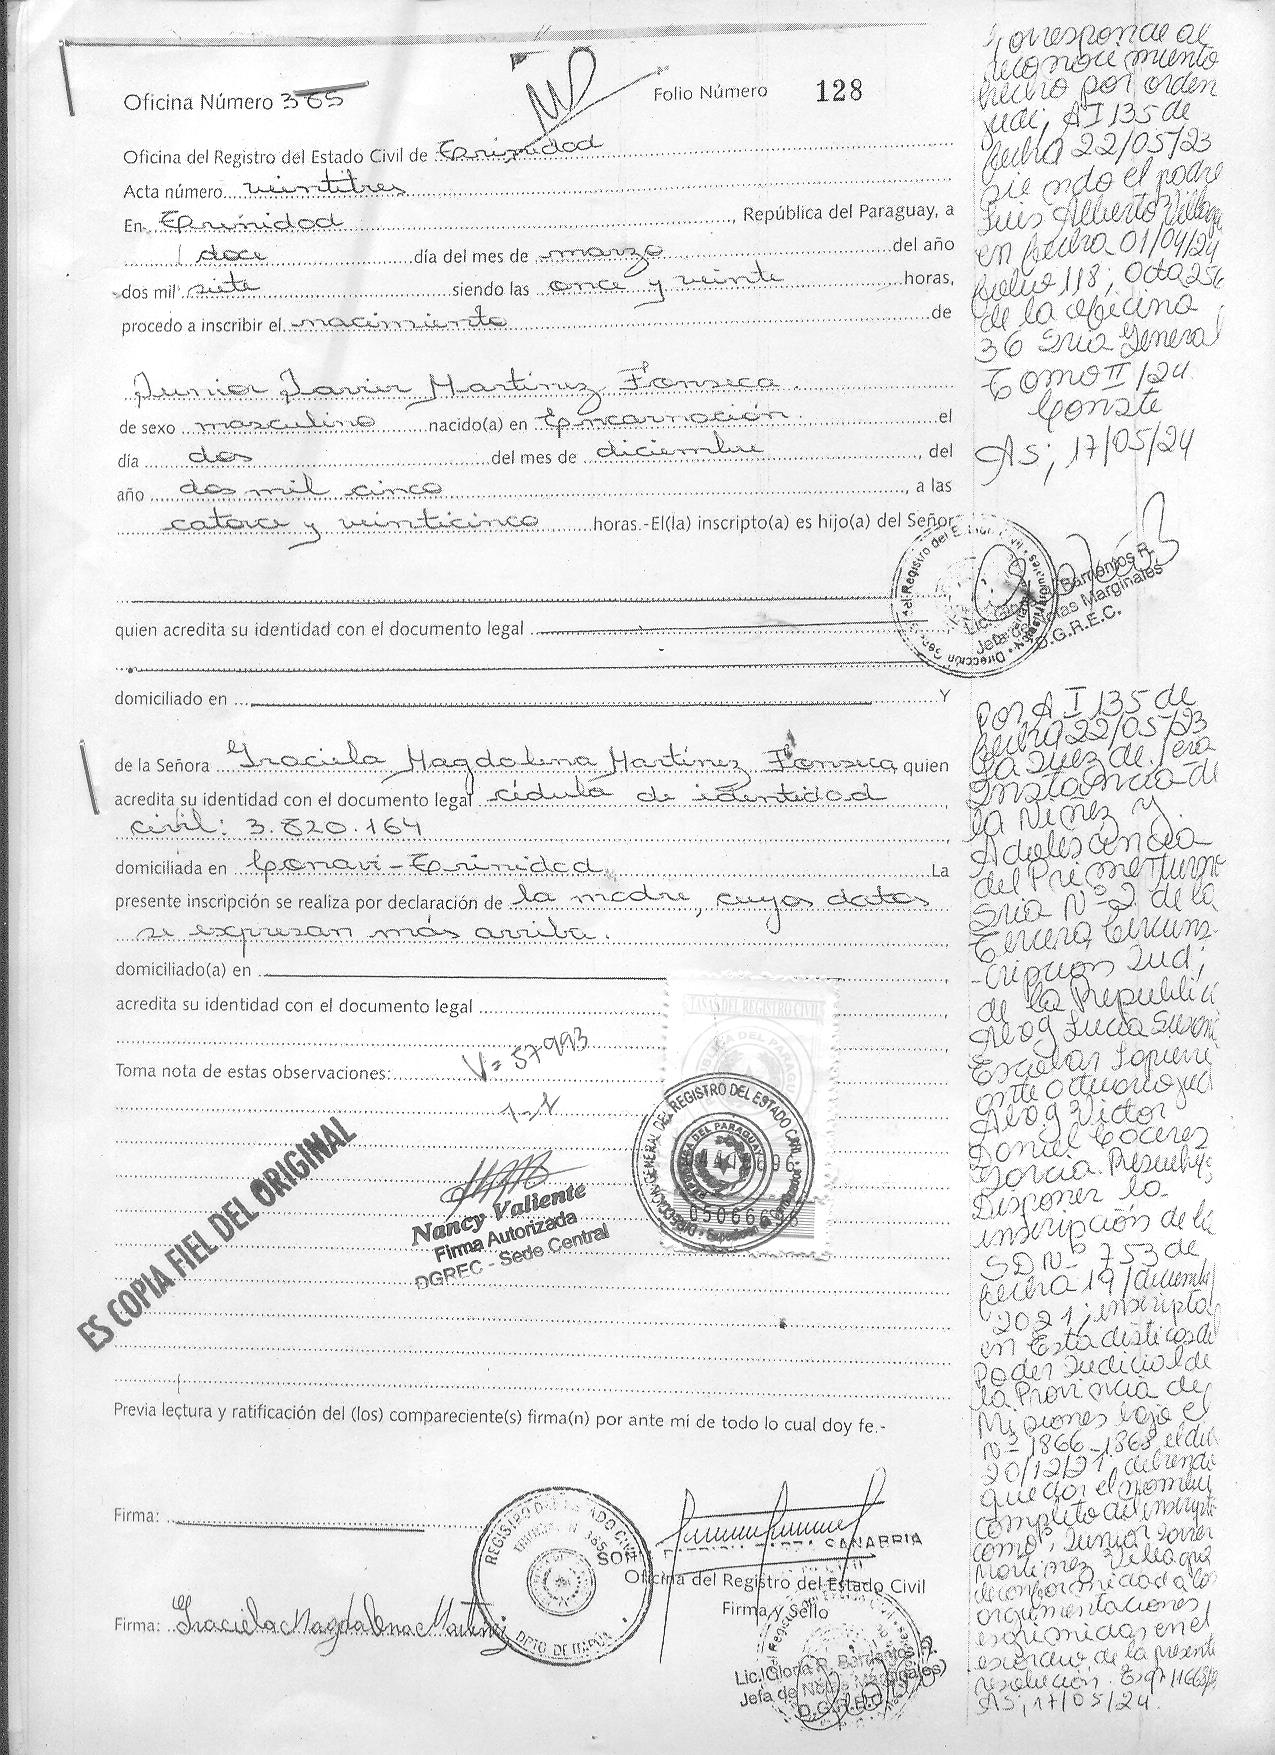 Oficina Número 365
Folio Número 128
Oficina del Registro del Estado Civil de Trinidad
Acta número veintitres
En Trinidad, República del Paraguay, a
doce día del mes de marzo del año
dos mil siete siendo las once y veinte horas,
procedo a inscribir el nacimiento de
Junior Javier Martínez Fonseca
de sexo masculino nacido(a) en Encarnación el
día dos del mes de diciembre, del
año dos mil cinco, a las
catorce y veinticinco horas.-El(la) inscripto(a) es hijo(a) del Señor
quien acredita su identidad con el documento legal
domiciliado en Y
de la Señora Graciela Magdalena Martínez Fonseca quien
acredita su identidad con el documento legal cédula de identidad
civil: 3.820.164
domiciliada en Conavi-Trinidad La
presente inscripción se realiza por declaración de la madre, cuyos datos
se expresan más arriba.
domiciliado(a) en
acredita su identidad con el documento legal
Toma nota de estas observaciones:
V=57993
TASAS DEL REGISTRO CIVIL
DIRECCION GENERAL DEL REGISTRO DEL ESTADO CIVIL
REPUBLICA DEL PARAGUAY
ES COPIA FIEL DEL ORIGINAL
Nancy Valiente
Firma Autorizada
DGREC - Sede Central
Previa lectura y ratificación del (los) compareciente(s) firma(n) por ante mí de todo lo cual doy fe.-
Firma:
REGISTRO DEL ESTADO CIVIL
DPTO DE ITAPUA
SANABRIA
Oficina del Registro del Estado Civil
Firma y Sello
Firma: Graciela Magdalena Martínez
Lic. Gloria R.
Jefa de Notas Marginales
D.G.R.E.C.
Corresponde al
reconocimiento
hecho por orden
judi; AI 135 de
fecha 22/05/23
siendo el padre
Luis Alberto Villaga
en fecha 01/04/24
folio 118; acta 256
de la oficina
36 Sria General
Tomo II/24.
Conste
As; 17/05/24
Barrientos R.
Jefa de Notas Marginales
D.G.R.E.C.
Por A I 135 de
fecha 22/05/23
La Juez de 1era
Instancia de
la Niñez y
Adolescencia
del Primer Turno
Sria Nº 2 de la
Tercera Circuns-
-cripcion Jud;
de la Republica
Abog Lucia
Escobar
ante actuario jud
Abog Victor
Daniel Caceres
Garcia. Resuelve;
Disponer la
inscripción de la
SD Nº 753 de
fecha 19/diciembre
2021; inscripta
en Estadisticas del
Poder Judicial de
la Provincia de
Misiones bajo el
Nº 1866-1868 el dia
20/12/21, debiendo
quedar el nombre
completo del inscripto
como; Junior Javier
Martinez Villaga
de conformidad a los
argumentaciones
esgrimidas en el
de la presente
resolución.
As; 17/05/24.